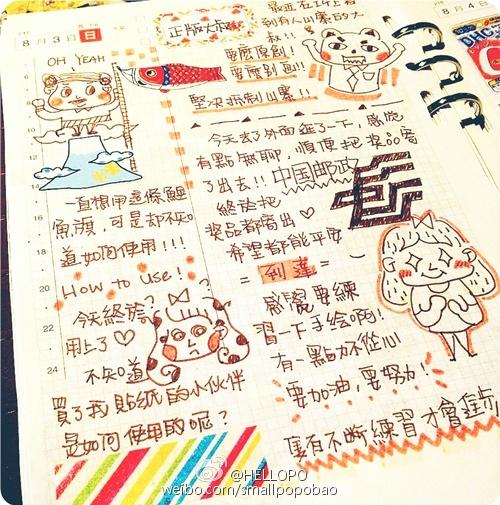 8月3日
日
OH YEAH
一直想用這條鯉
魚旗,可是却不知
道如何使用!!!
How to Use!
今天終於
用上了♡
不知道
買了我貼紙的小伙伴
是如何使用的呢?
正版大叔
到有人山寨的大
叔!!
要麼原創!
要麼別画!!
堅決抵制山寨!!
今天去了外面逛了一下,感覺
有點無聊,順便把奖品寄
了出去!!中国邮政
終於把
奖品都寄出♡
希望都能平安
= 到達 =
感覺要練
習一下手绘啊!
有一點力不從心
要加油,要努力!
隻有不断練習才會進步
8月4日
DHC
@HELLOPO
weibo.com/smallpopobao